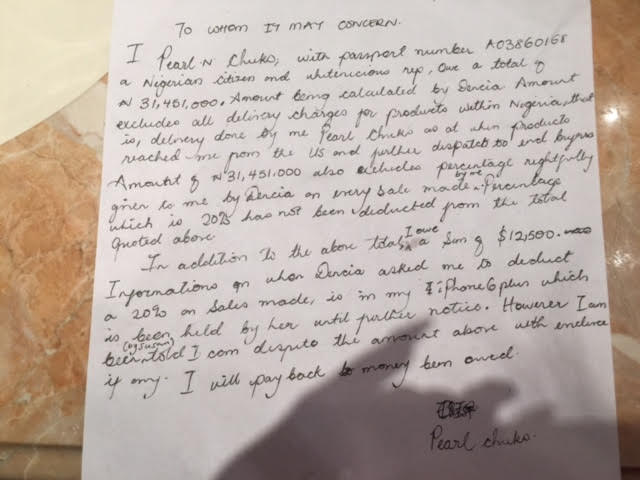 TO WHOM IT MAY CONCERN.
I Pearl N Chuks, with passport number A03860168
a Nigerian citizen and whitenicious rep, Owe a total of
₦ 31,451,000. Amount being calculated by Dencia. Amount
excludes all delivery charges for products within Nigeria, that
is, delivery done by me Pearl Chuks as at when products
reached me from the US and further dispatch to end buyers
Amount of ₦31,451.000 also excludes percentage rightfully
given to me by Dencia on every sale made by me. Percentage
which is 20% has not been deducted from the total
Quoted above.
In addition to the above total, I owe a Sum of $12,500.
Informations on when Dencia asked me to deduct
a 20% on Sales made, is in my iPhone 6 plus which
is been held by her until further notice. However I am
been (by Susan) told I can dispute the amount above with evidence
if any. I will pay back money been owed.
Pearl chuks.